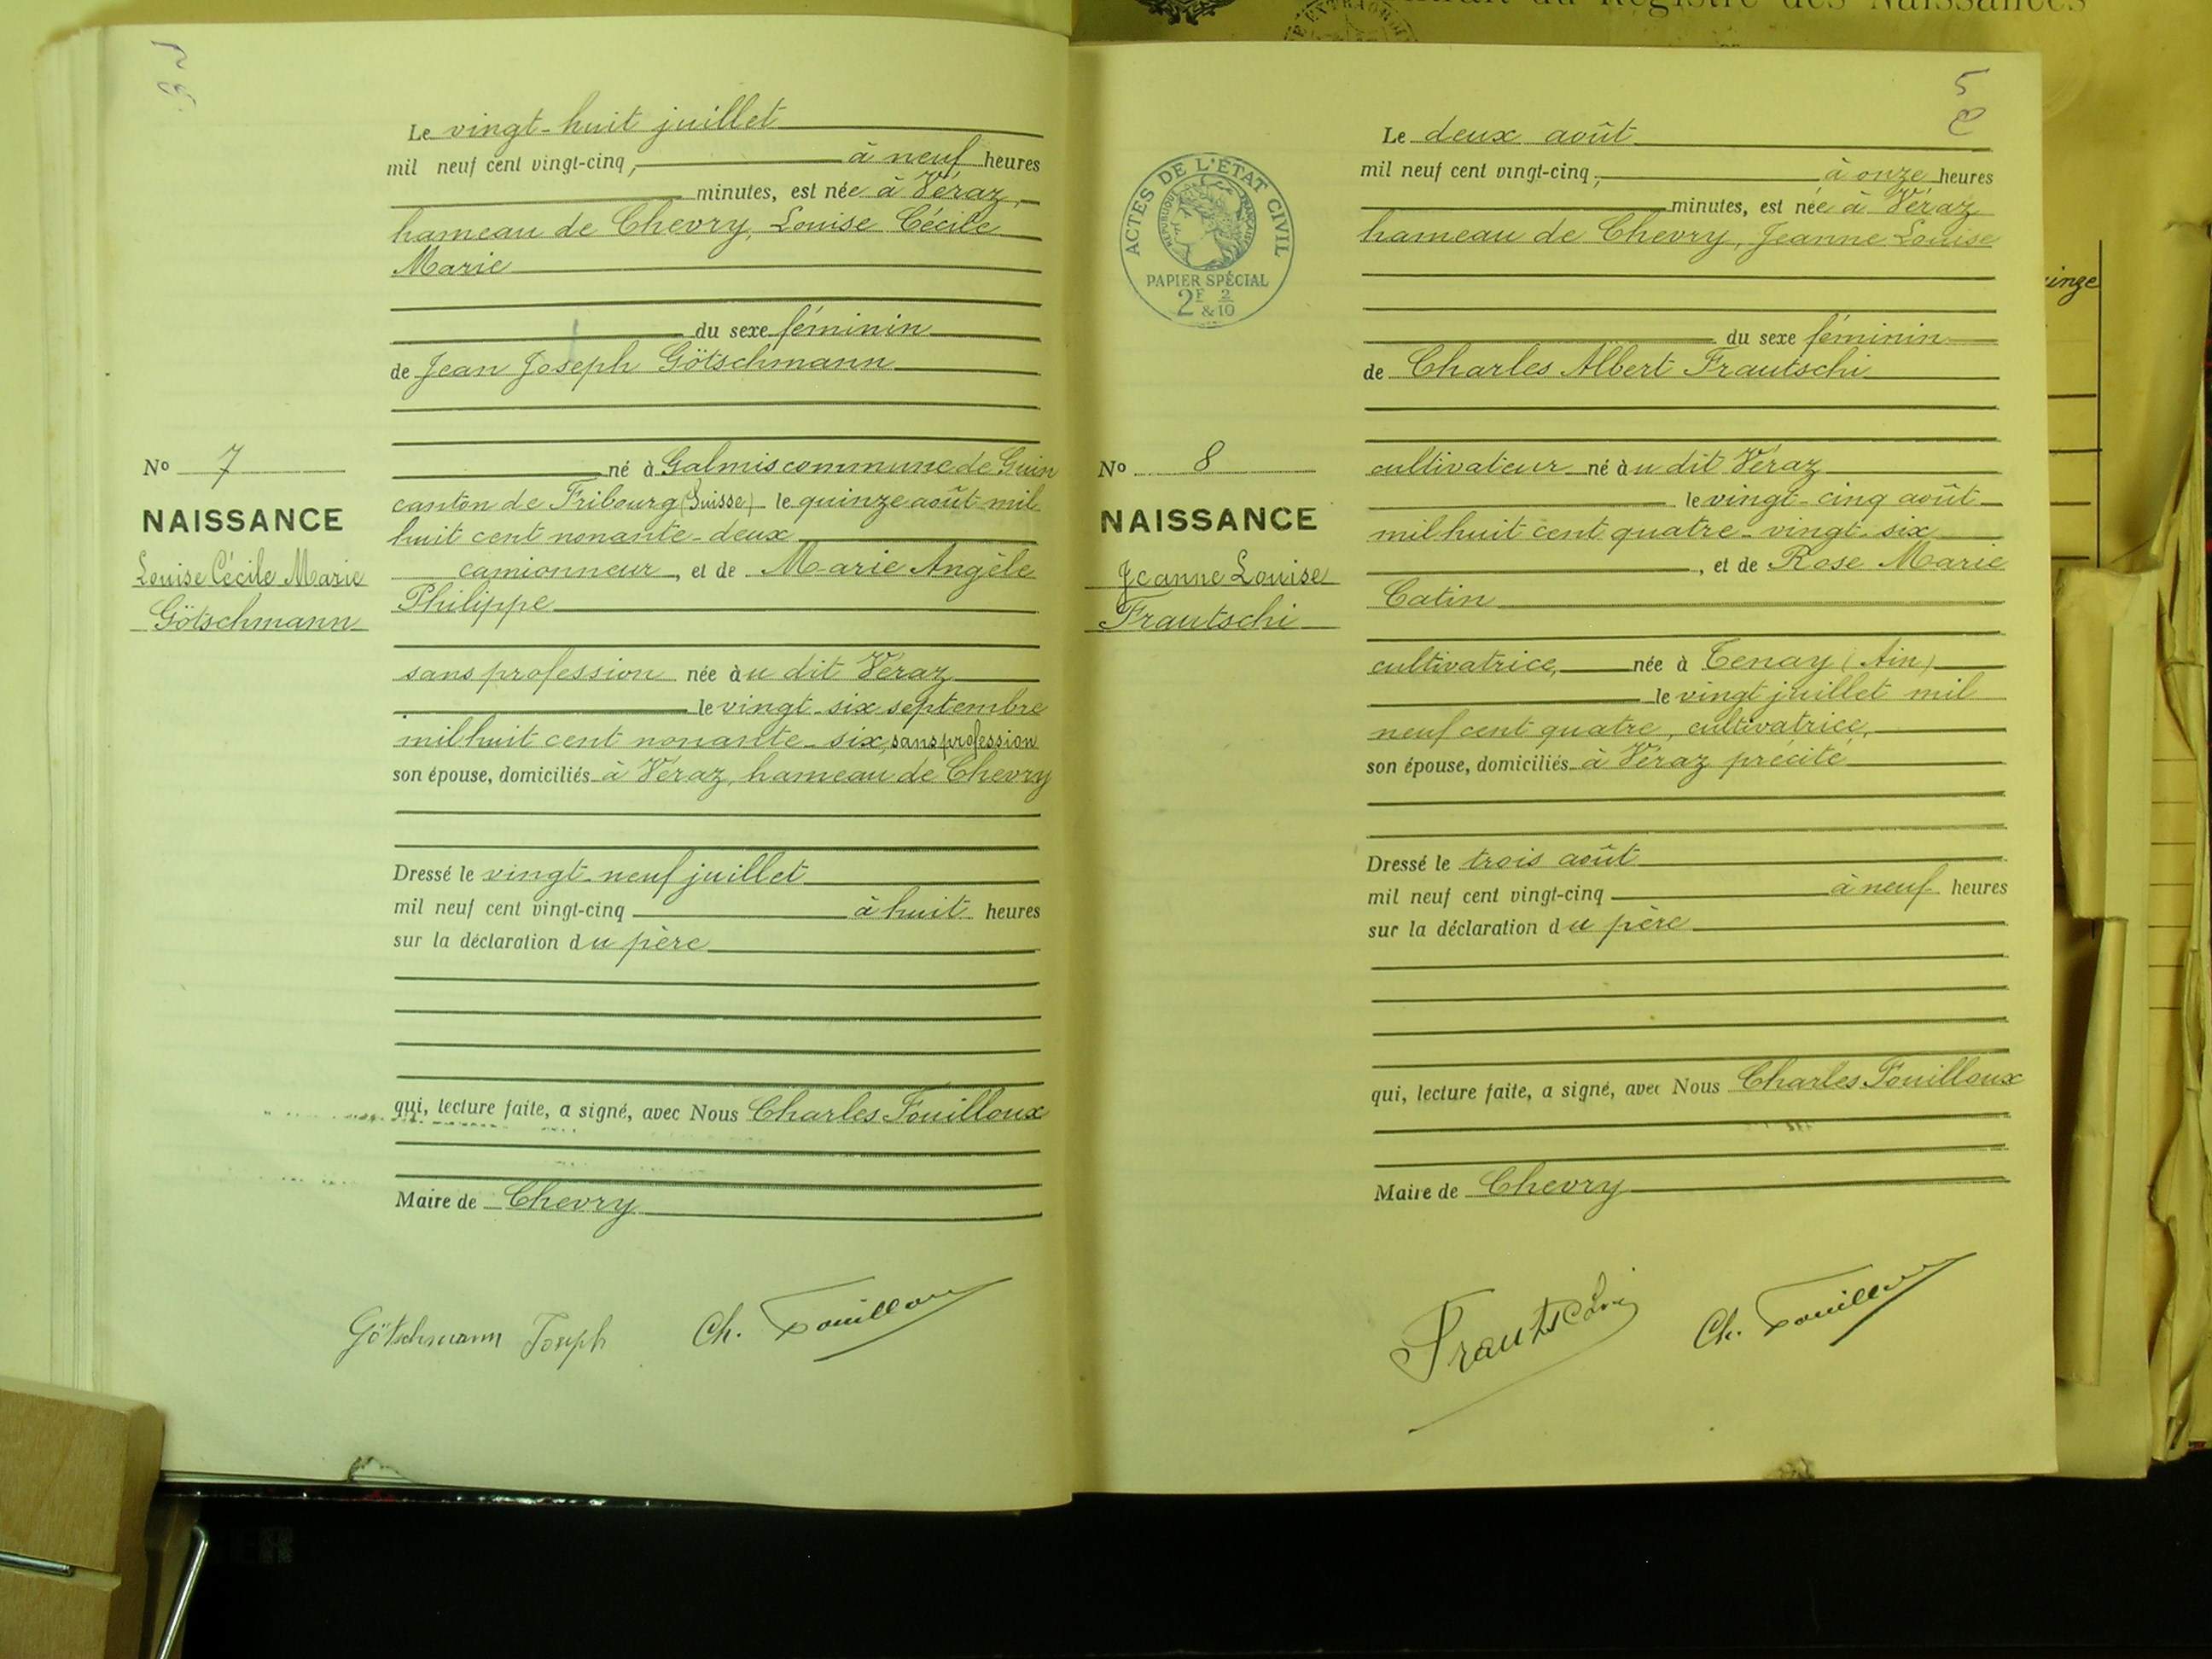 Le vingt-huit juillet
mil neuf cent vingt-cinq, à neuf heures
minutes, est née à Véraz,
hameau de Chevry, Louise Cécile
Marie
du sexe féminin
de Jean Joseph Götschmann
né à Galmis commune de Guin
canton de Fribourg (Suisse) le quinze août mil
huit cent nonante-deux
camionneur, et de Marie Angèle
Philippe
sans profession née àu dit Véraz
le vingt-six septembre
mil huit cent nonante-six, sans profession
son épouse, domiciliés à Véraz, hameau de Chevry
Dressé le vingt-neuf juillet
mil neuf cent vingt-cinq à huit heures
sur la déclaration du père
qui, lecture faite, a signé, avec Nous Charles Fouilloux
Maire de Chevry
Götschmann Joseph Ch. Fouilloux
No 7
NAISSANCE
Louise Cécile Marie
Götschmann
5
Le deux août
mil neuf cent vingt-cinq, à onze heures
minutes, est née à Véraz
hameau de Chevry, Jeanne Louise
du sexe féminin
de Charles Albert Frautschi
cultivateur né àu dit Véraz
le vingt-cinq août
mil huit cent quatre-vingt-six
, et de Rose Marie
Catin
cultivatrice, née à Tenay (Ain)
le vingt juillet mil
neuf cent quatre, cultivatrice,
son épouse, domiciliés à Véraz précité
Dressé le trois août
mil neuf cent vingt-cinq à neuf heures
sur la déclaration du père
qui, lecture faite, a signé, avec Nous Charles Fouilloux
Maire de Chevry
Frautschi Ch. Fouilloux
No 8
NAISSANCE
Jeanne Louise
Frautschi
ACTES DE L'ÉTAT CIVIL
RÉPUBLIQUE FRANÇAISE
PAPIER SPÉCIAL
2F & 2/10
Registre des Naissances